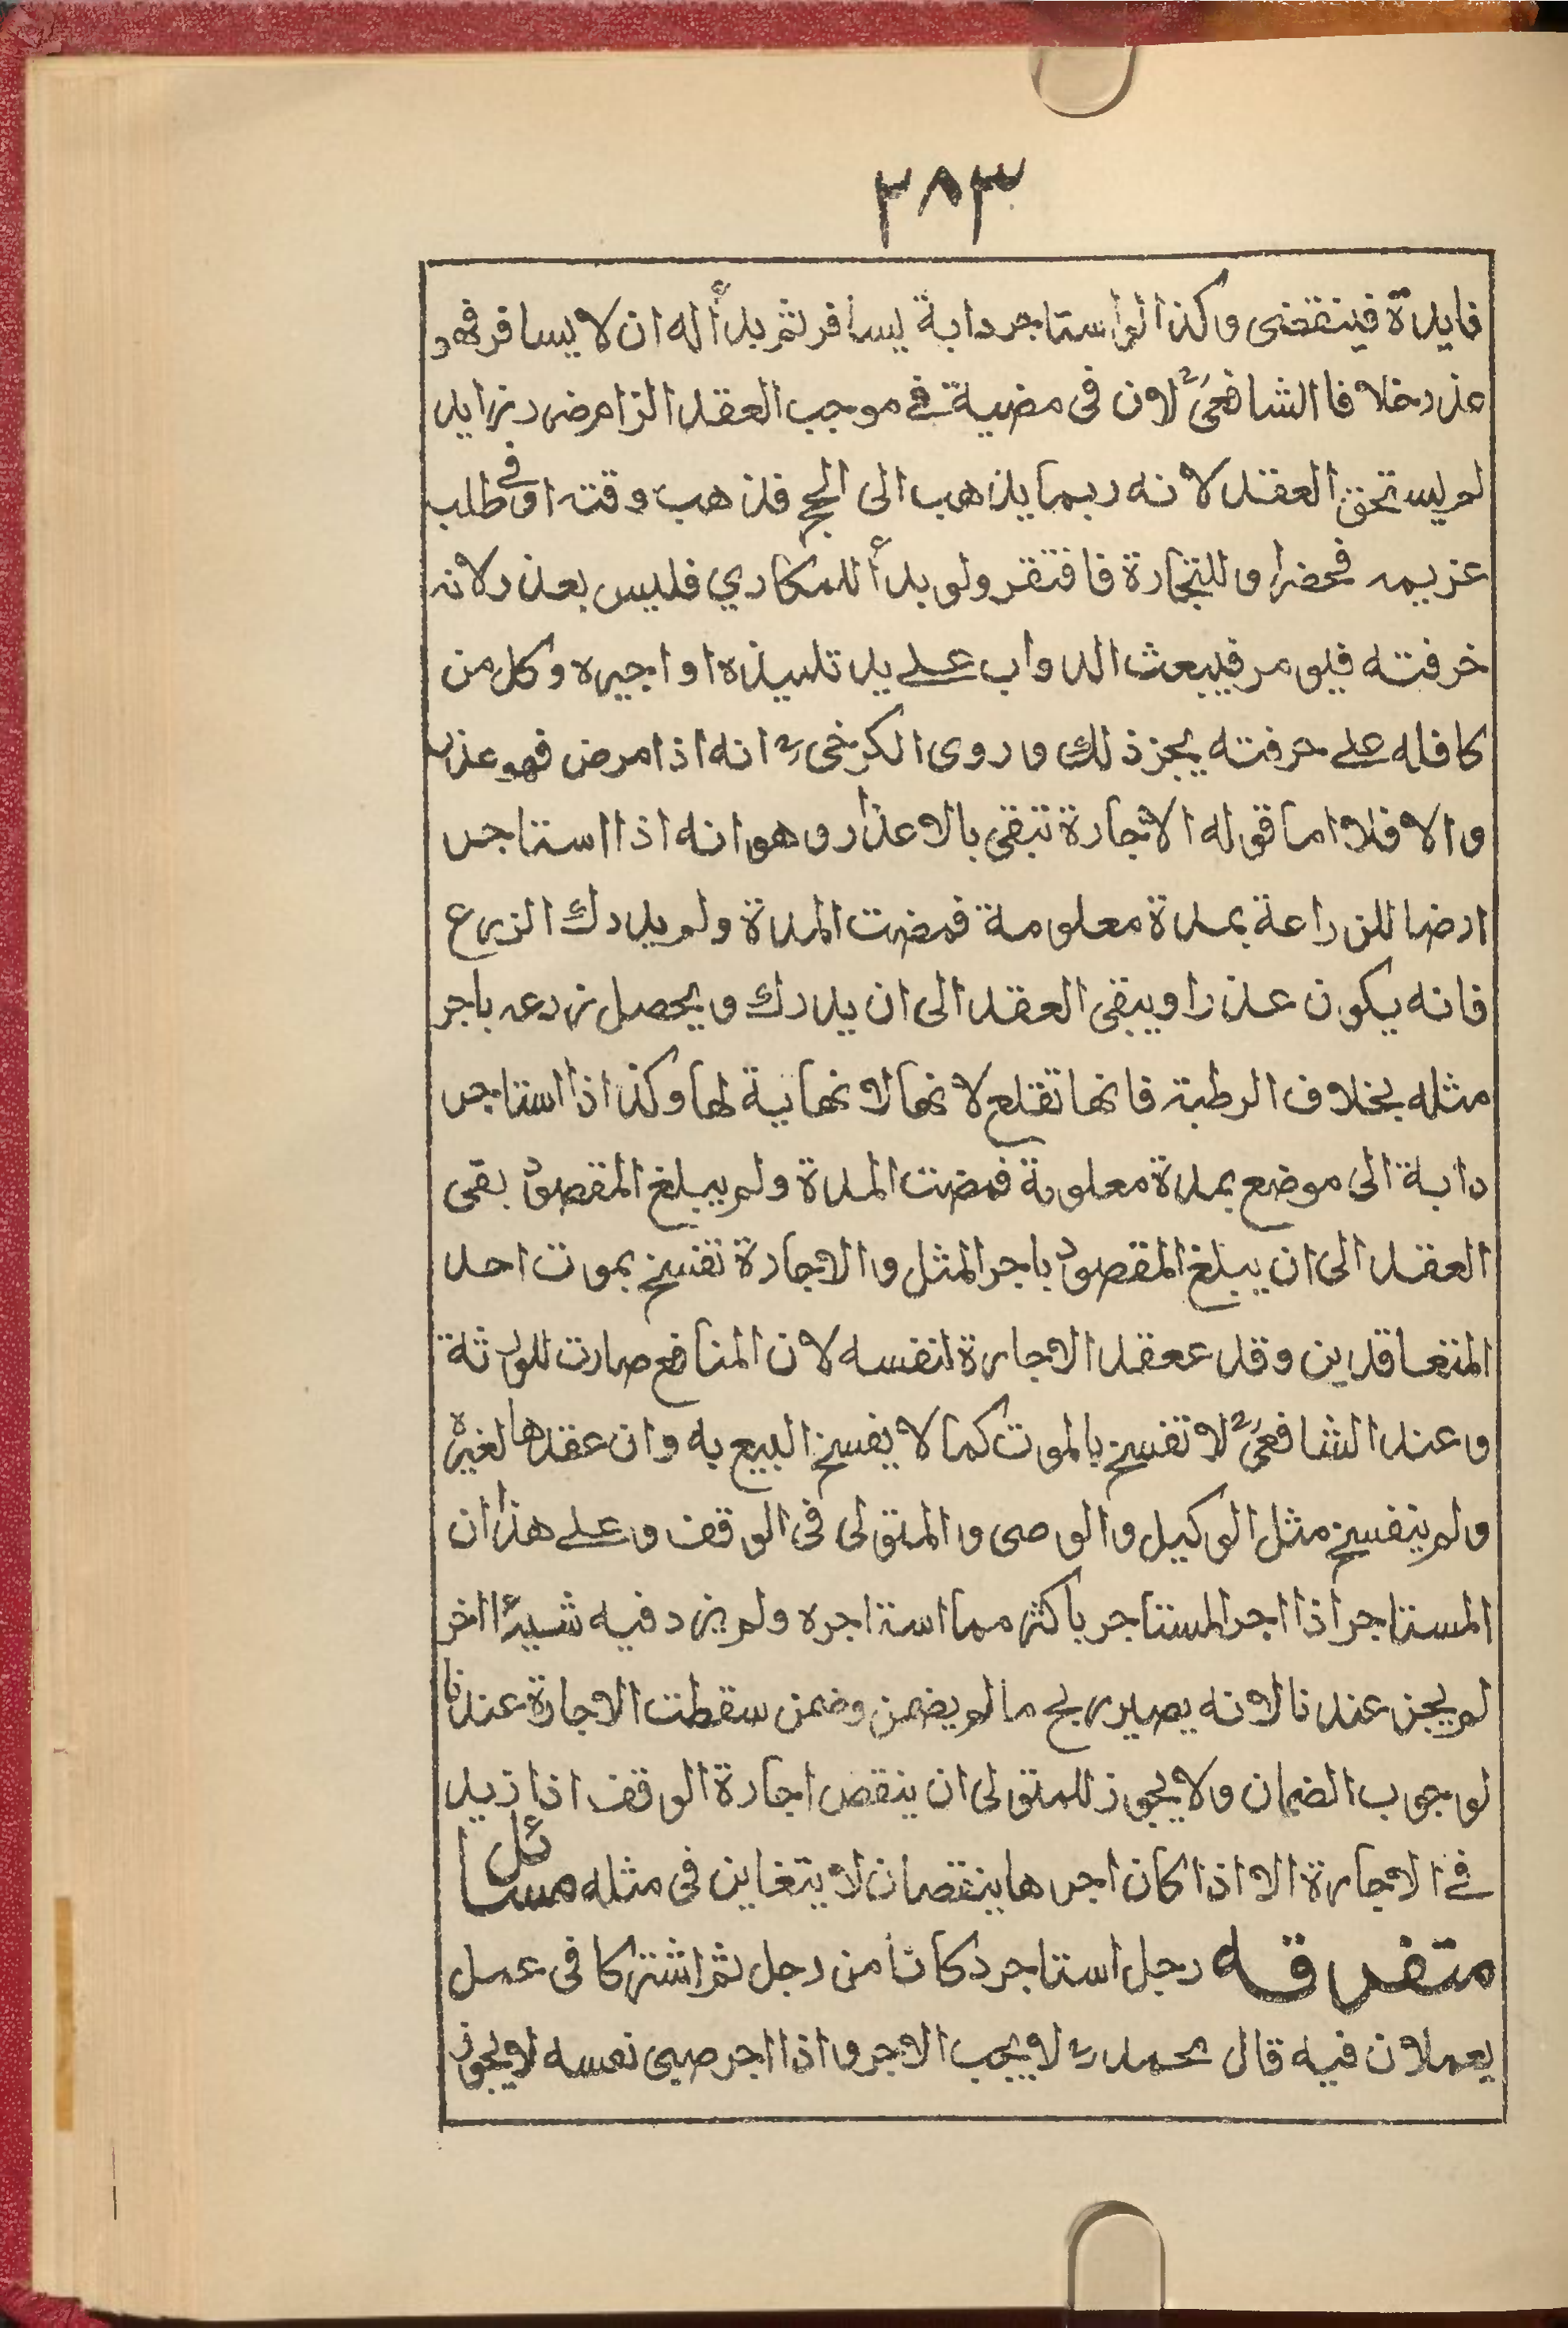 ٢٨٣
فايدة فينقضى وكذا لو استاجر دابة ليسافر ثم بدأ له ان لا يسافر فهو
عذر خلافا الشافعىؒ لان فى مضيه فى موجب العقد الزام ضرر زايد
لم يستحق العقد لانه ربما يذهب الى الحج فذهب وقته او فى طلب
غريمه فحضر او للتجارة فافتقر ولو بدأ للمكاري فليس بعذر لانه
خرفته فيومر فيبعث الدواب على يد تلميذه او اجيره وكل من
كافله على حرفته يجز ذلك وروى الكرخىؒ انه اذا مرض فهو عذر
والا فلا اما قوله الاجارة تبقى بالاعذار وهو انه اذا استاجر
ارضا للزراعة بمدة معلومة فمضت المدة ولم يدرك الزرع
فانه يكون عذرا ويبقى العقد الى ان يدرك ويحصل زرعه باجر
مثله بخلاف الرطبة فانها تقلع لانها لا نهاية لها وكذا اذا استاجر
دابة الى موضع بمدة معلومة فمضت المدة ولم يبلغ المقصود بقى
العقد الى ان يبلغ المقصود باجر المثل والاجارة تفسخ بموت احد
المتعاقدين وقد ععقد الاجارة لنفسه لان المنافع صارت للورثة
وعند الشافعىؒ لا تفسخ بالموت كما لا يفسخ البيع به وان عقدها لغيره
ولم ينفسخ مثل الوكيل والوصى والمتولى فى الوقف وعلى هذا ان
المستاجر اذا اجر المستاجر باكثر مما استاجره ولم يزد فيه شيئًا اخر
لم يجز عندنا لانه يصير ربح ما لم يضمن وضمن سقطت الاجارة عندنا
لوجوب الضمان ولا يجوز للمتولى ان ينقض اجارة الوقف اذا زيد
فى الاجارة الا اذا كان اجرها بنقصان لا يتغابن فى مثله مسائل
متفرقه رجل استاجر دكانا من رجل ثم اشتركا فى عمل
يعملان فيه قال محمدؒ لا يجب الاجر واذا اجر صبى نفسه لا يجوز